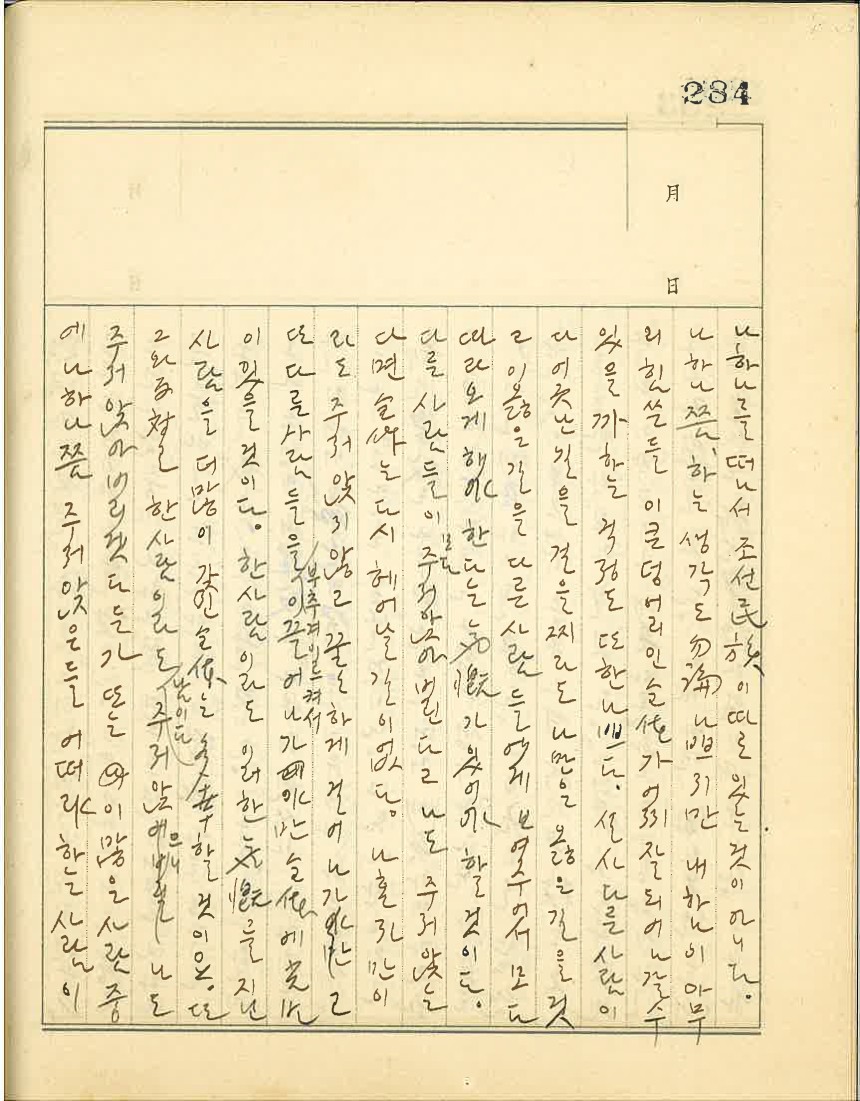 284
月
日
나 하나를 떠나서 조선民族이 따로 있는 것이 아니다.
나 하나쯤, 하는 생각도 勿論 나쁘지만 내 하나이 아무
리 힘쓴들 이 큰 덩어리인 全体가 어찌 잘 되어 나갈 수
있을까 하는 걱정도 또한 나쁘다. 설사 다른 사람이
다 어긋난 길을 걸을찌라도 나만은 옳은 길을 것
고 이 옳은 길을 다른 사람들에게 보여주어서 모다
따라오게 해야 한다는 氣慨가 있어야 할 것이다.
다른 사람들이 모다 주저앉아 버린다고 나도 주저앉는
다면 全体는 다시 헤어날 길이 없다. 나 홀러만이
라도 주저앉지 않고 끝끝하게 걸어 나가야만 그
또 다른 사람들을 부추겨 이르켜서 이끌어 나가야만 全体에 光明
이 있을 것이다. 한 사람이라도 이러한 氣慨를 지닌
사람을 더 많이 갖인 全体는 多幸할 것이오. 또
그와 反対로 한 사람이라도 남이 다 주저앉으니 나도
주저앉아 버리겟다든가 또는 이 많은 사람 중
에 나 하나쯤 주저앉은들 어떠랴 하는 사람이